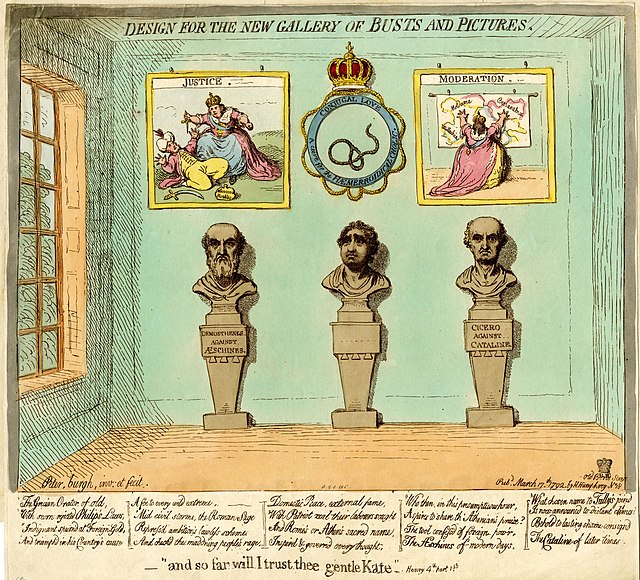 DESIGN FOR THE NEW GALLERY OF BUSTS AND PICTURES.
JUSTICE.
CONJUGAL LOVE
MODERATION.
DEMOSTHENES
AGAINST
ÆSCHINES.
CICERO
AGAINST
CATALINE.
Peter, burgh, inv: et fecit.
Pubd. March 17th 1792. by H. Humphrey N. 
The Grecian Orator of old,
With scorn rejected Philip's Laws,
Indignant spurn'd at Foreign Gold,
And triumph'd in his Country's cause.
A foe to every wild extreme
'Mid civil storms, the Roman Sage
Repress'd ambition's lawless scheme
And check'd the madd'ning people's rage,
Domestic Peace, external fame,
With Patriot zeal their labours sought
And Rome's or Athens' sacred name,
Inspir'd & govern'd every thought,
Who then, in this presumptuous hour,
Aspires to share th' Athenian's praise?
The tool of foreign pow'r,
The Æschines of modern days.
What chosen name to Tully's join'd
Is now announced to distant climes?
Behold to lasting shame consign'd
The Cataline of later times.
"and so far will I trust thee gentle Kate". Henry 4th part 1st